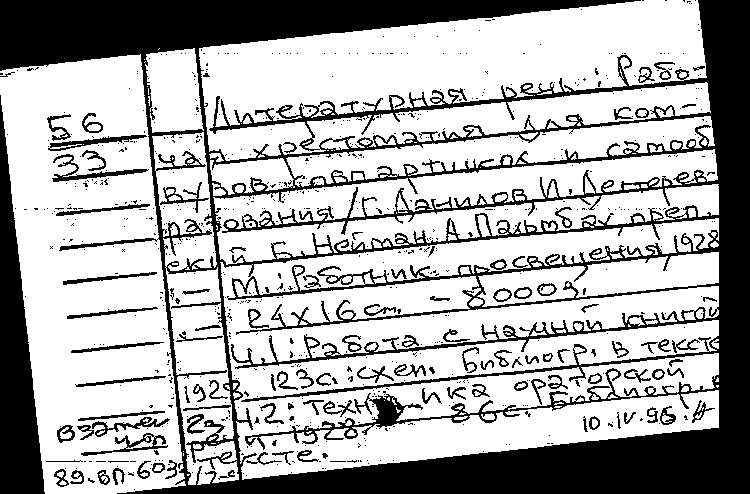 56
33
Литературная речь: Рабо-
чая хрестоматия для ком-
вузов, совпартшкол и самооб
разования / Г. Данилов, И. Дегтерев-
ский, Б. Нейман, А. Пальмбах, преп.
.— М.: Работник просвещения, 1928
.— 24х16 см. – 8000э.
Ч.1: Работа с научной книгой
1928. 123с.: схем. Библиогр. в тексте
Ч.2: Техника ораторской
речи. 1928. 86с. Библиогр. в
тексте.
Взамен
10.IV.96.
89-ВП-603